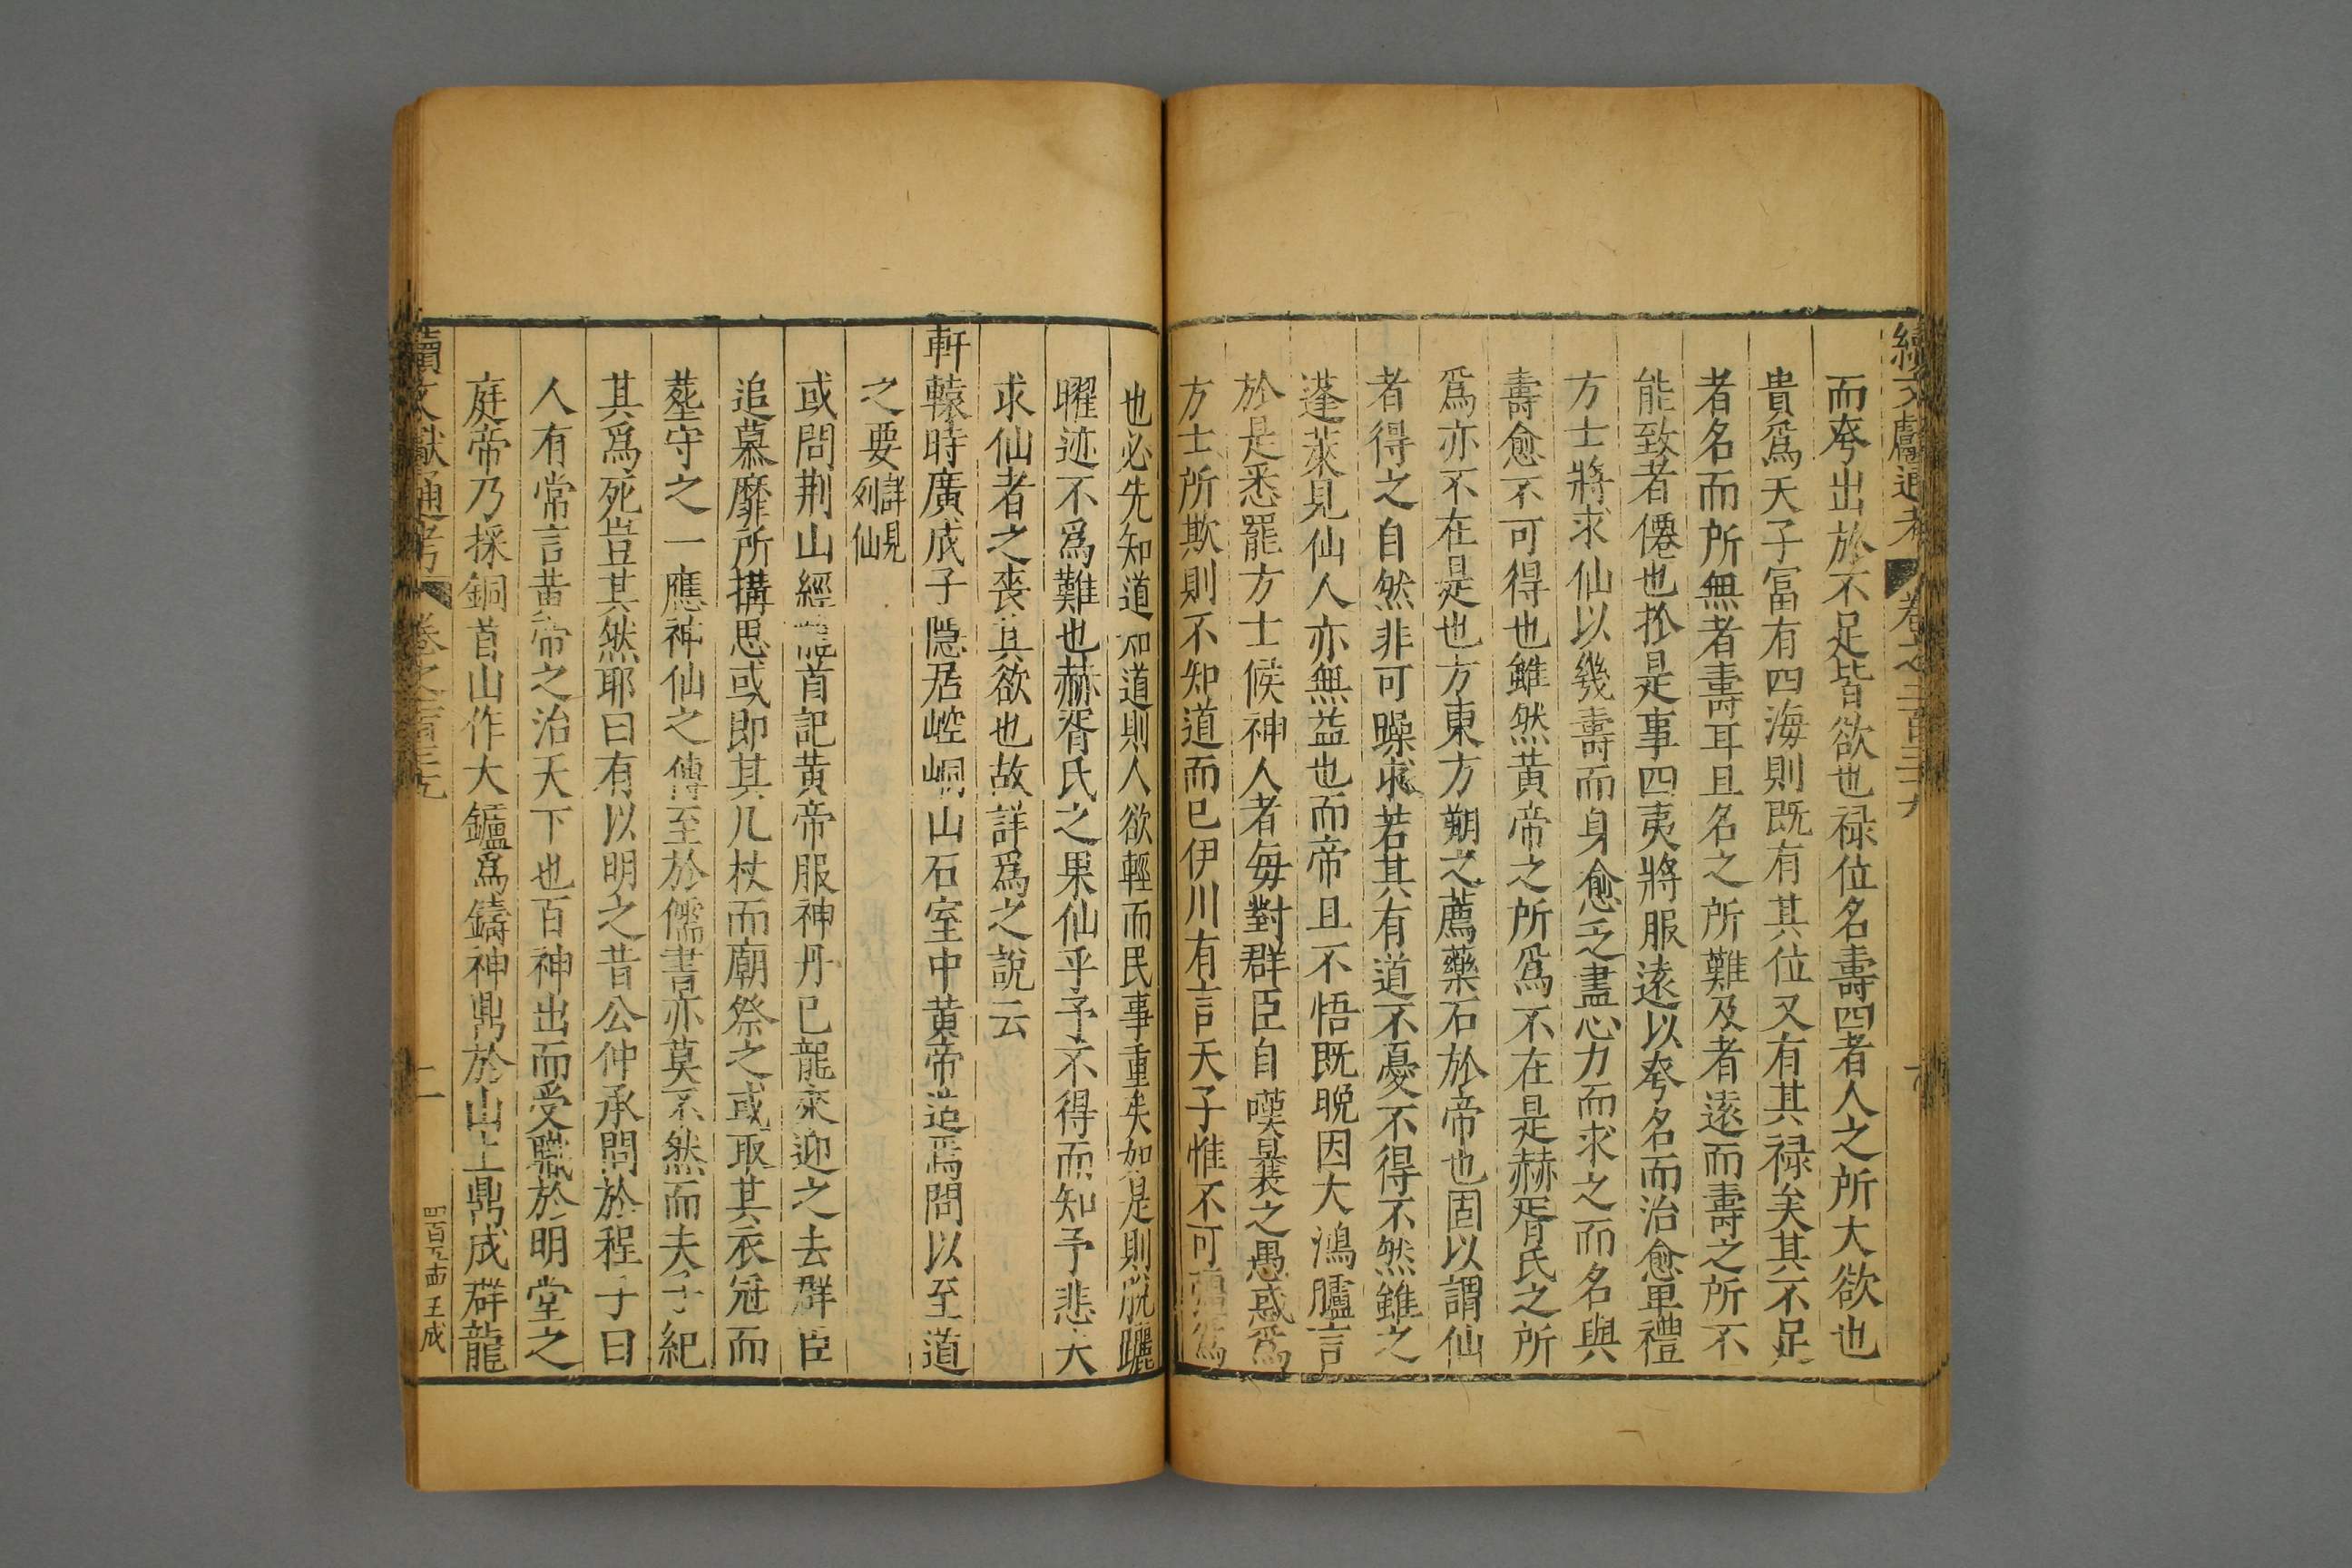 續文獻通考 卷之二百三十九
而夸出於不足皆欲也禄位名壽四者人之所大欲也
貴爲天子富有四海則既有其位又有其禄矣其不足
者名而所無者壽耳且名之所難及者遠而壽之所不
能致者僊也於是事四夷將服遠以夸名而治愈畢禮
方士將求仙以幾壽而身愈乏盡心力而求之而名與
壽愈不可得也雖然黃帝之所爲不在是赫胥氏之所
爲亦不在是也方東方朔之薦藥石於帝也固以謂仙
者得之自然非可躁求若其有道不憂不得不然雖之
蓬萊見仙人亦無益也而帝且不悟既晚因大鴻臚言
於是悉罷方士候神人者每對群臣自嘆曩之愚惑爲
方士所欺則不知道而已伊川有言天子惟不可
也必先知道知道則人欲輕而民事重矣如是則脫躧
曜迹不爲難也赫胥氏之果仙乎予不得而知予悲夫
求仙者之喪其欲也故詳爲之說云
軒轅時廣成子隱居崆峒山石室中黃帝造焉問以至道
之要詳見列仙
或問荆山經龍首記黃帝服神丹已龍來迎之去群臣
追慕靡所搆思或即其几杖而廟祭之或取其衣冠而
塟守之一應神仙之傳至於儒書亦莫不然而夫子紀
其爲死豈其然耶曰有以明之昔公仲承問於程子曰
人有常言黃帝之治天下也百神出而受職於明堂之
庭帝乃採銅首山作大鑪爲鑄神鼎於山上鼎成群龍
續文獻通考 卷之二百三十九 二 王成